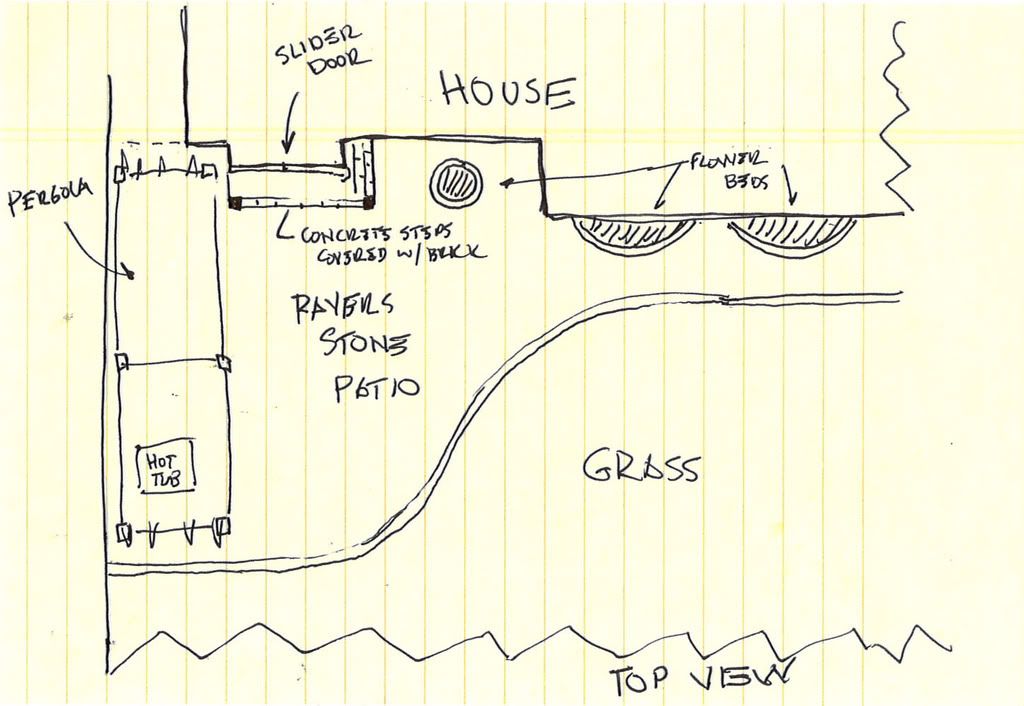 SLIDER
DOOR
HOUSE
PERGOLA
FLOWER
BEDS
CONCRETE STEPS
COVERED W/ BRICK
PAVERS
STONE
PATIO
HOT
TUB
GRASS
TOP VIEW